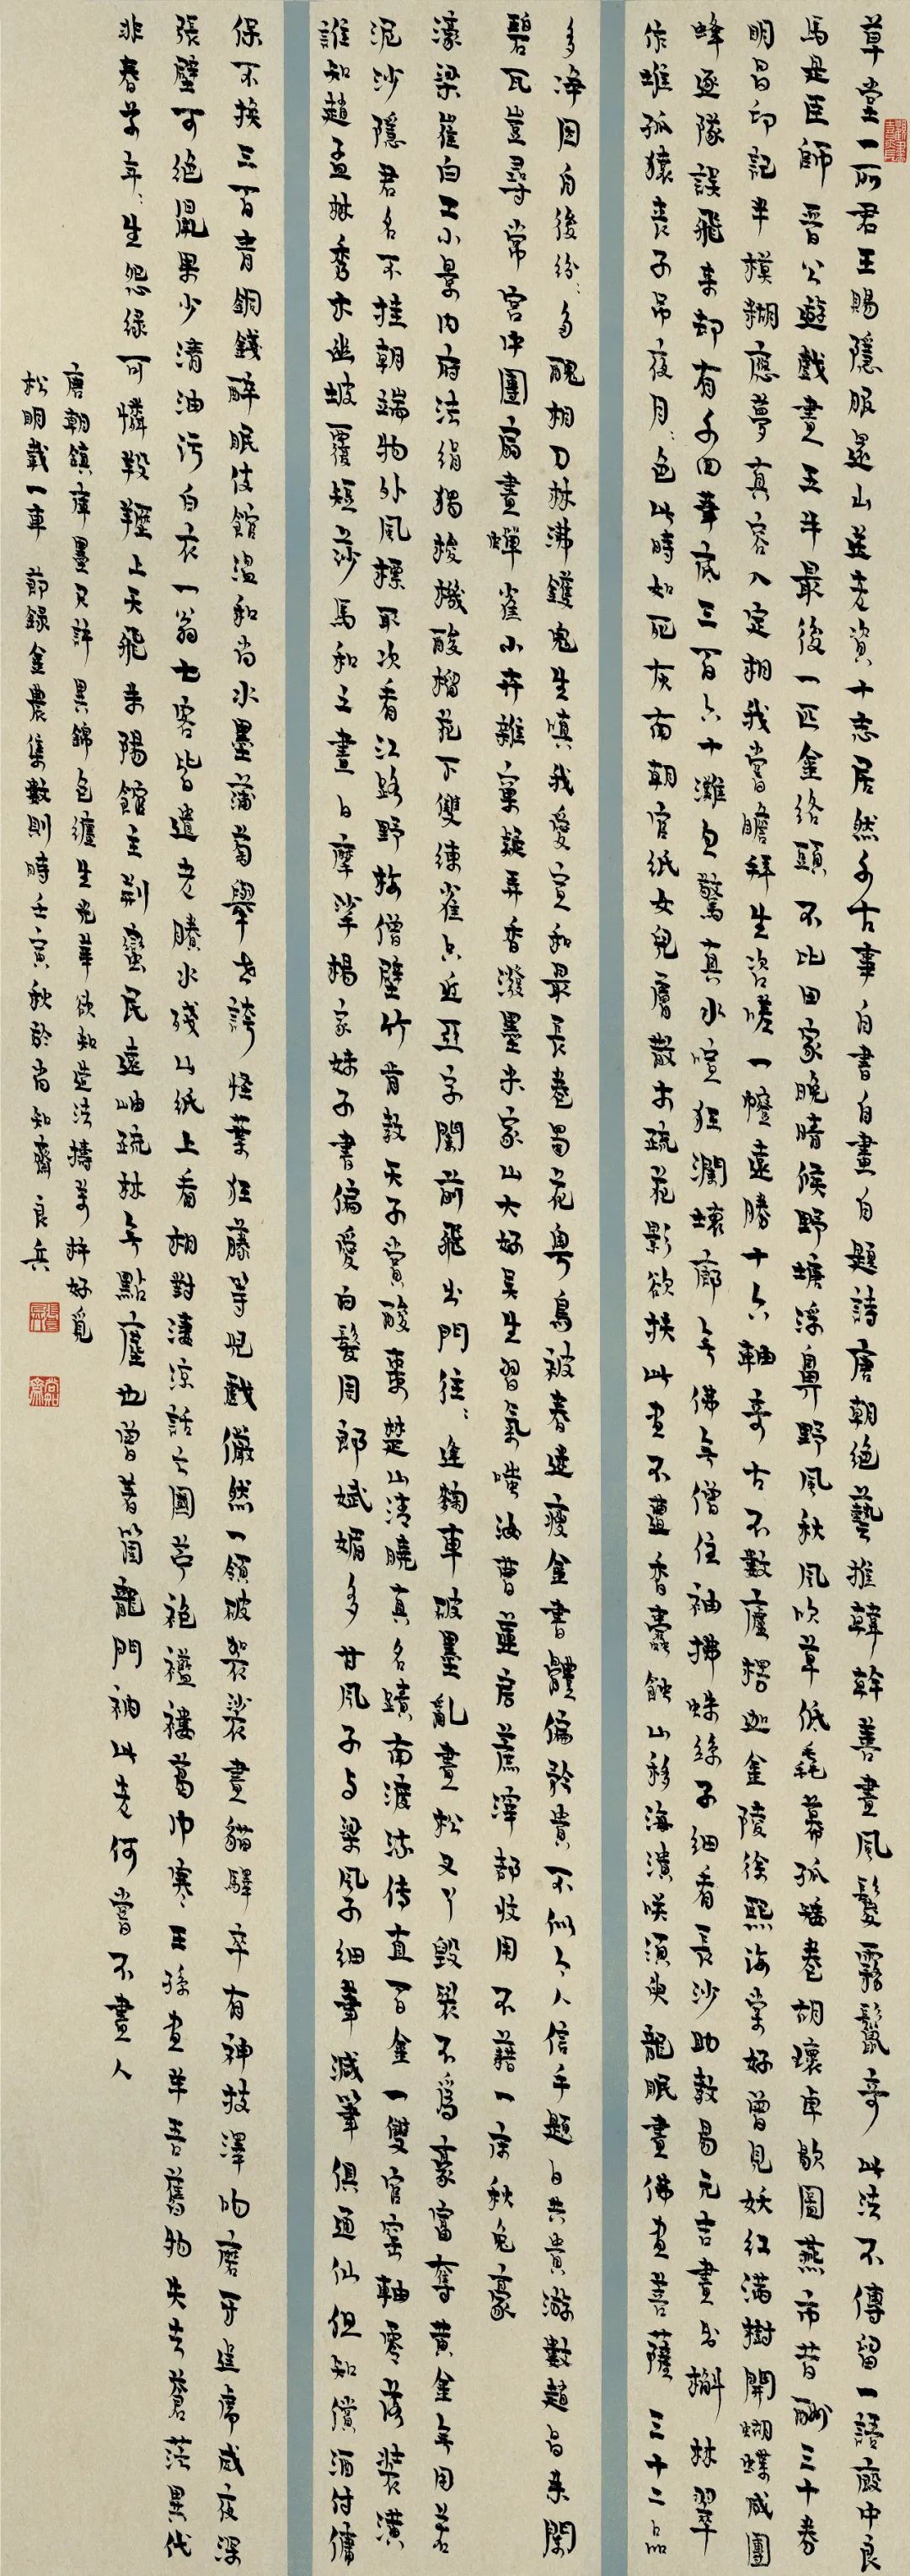 草堂一所君王賜隱服還山送老資十志居然千古事自書自畫自題詩唐朝絕藝推韓幹善畫風鬉霧鬣奇此法不傳留一語廄中良
馬是臣師晉公遊戲畫五牛最後一匹金絡頭不比田家晚晴候野塘浮鼻野風秋風吹草低毛幕孤幡卷胡瓌卓歇圖燕市昔酬三十券
明昌印記半模糊應夢真容入定相我嘗瞻拜生咨嗟一幢遠勝十六軸奇古不數盧楞迦金陵徐熙海棠好曾見妖紅滿樹開蝴蝶成團
蜂逐隊誤飛來却有千回筆底三百六十灘自驚真水喧狂瀾壞廊無佛無僧住袖拂蛛絲子細看長沙助教易元吉畫出槲林翠
作堆孤猿喪子吊夜月月色此時如死灰南朝官紙女兒膚散木疏花影欲扶此畫不薑香蠹蝕山移海潰咲須臾龍眠畫佛畫菩薩三十二品
多淨因自後紛紛多醜相刀林沸鑊鬼生嗔我愛宣和最長卷蜀花粵鳥被春遠瘦金書體偏矜貴不似今人信手題日共貴游數趙昌未開
碧瓦豈尋常宮中團扇畫蟬雀小卉雜窠疑弄香潑墨米家山大好吳生習氣嗤油曹薑唐蔗滓都收用不藉一床秋兔豪
濠梁崔白工小景內府法絹獨梭機酸榴花下雙練雀只近亞字闌前飛出門往往逢麴車破墨亂畫松叉丫毀裂不為豪富奪黃金無用若
泥沙隱君名不挂朝端物外風標取次看江路野梅僧壁竹肯教天子賞酸棗楚山清曉真名蹟南渡流傳直百金一雙官窯軸零落裝潢
誰知趙孟林秀木幽坡覆短莎馬和之畫日摩挲楊家妹子書偏愛白髮周郎斌媚多甘風子與梁風子細筆減筆俱通仙但知償酒付傭
保不換三百青銅錢醉眠伎館溫和尚水墨蒲萄舉世誇怪葉狂藤等兒戲儼然一領破袈裟畫貓驛卒有神技澤吻磨牙逞席威夜深
張壁可絕鼠果少清油污白衣一翁七客皆遺老賸水殘山紙上看相對淒涼話亡國苧袍襤褸葛巾寒王孫畫羊吾舊物失去蒼茫異代
非春草年年生怨綠可憐羖䍽上天飛來陽館主荊蠻民遠岫疏林無點塵也曾著箇龍門衲此老何嘗不畫人
唐朝鎮庫墨只許異錦包纏生光華欲知造法擣萬杵好覓
松明載一車 節錄金農集數則時壬寅秋於尚知齋良兵